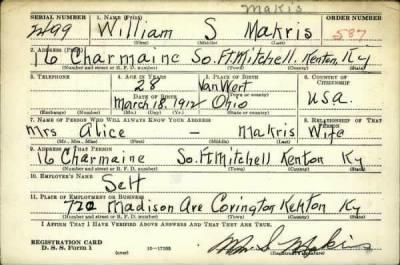 Makis
SERIAL NUMBER 1. NAME (Print) ORDER NUMBER
2499 William S Makris 587
(First) (Middle) (Last)
2. ADDRESS (Print)
16 Charmaine So. Ft Mitchell. Kenton, Ky
(Number and street or R. F. D. number) (Town) (County) (State)
3. TELEPHONE 4. AGE IN YEARS 5. PLACE OF BIRTH 6. COUNTRY OF CITIZENSHIP
28 Van Wert
DATE OF BIRTH (Town or county)
March 18, 1912 Ohio U.S.A.
(Exchange) (Number) (Mo.) (Day) (Yr.) (State or country)
7. NAME OF PERSON WHO WILL ALWAYS KNOW YOUR ADDRESS 8. RELATIONSHIP OF THAT PERSON
Mrs Alice - Makris Wife
(Mr., Mrs., Miss) (First) (Middle) (Last)
9. ADDRESS OF THAT PERSON
16 Charmaine So. Ft Mitchell Kenton Ky
(Number and street or R. F. D. number) (Town) (County) (State)
10. EMPLOYER'S NAME
Self
11. PLACE OF EMPLOYMENT OR BUSINESS
Madison Ave Covington Kenton Ky
(Number and street or R. F. D. number) (Town) (County) (State)
I AFFIRM THAT I HAVE VERIFIED ABOVE ANSWERS AND THAT THEY ARE TRUE.
REGISTRATION CARD
D. S. S. Form 1 16-17105 Wm S Makis